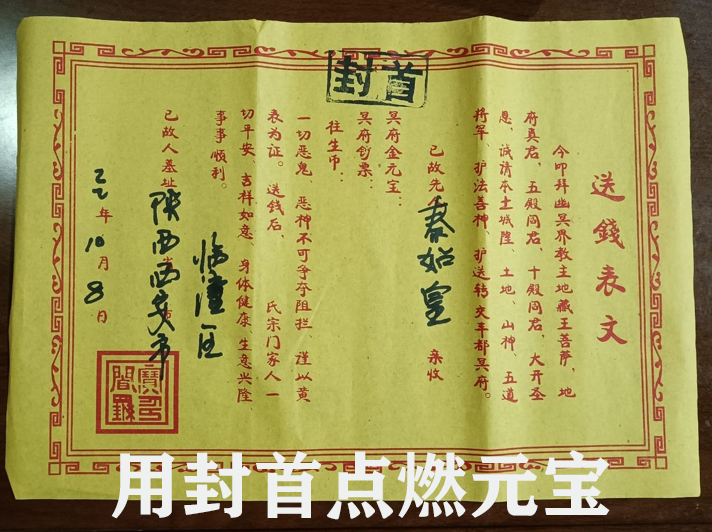 送錢表文
今叩拜幽冥界教主地藏王菩萨、地
府真君、五殿阎君、十殿阎君、大开圣
恩、诚请本土城隍、土地、山神、五道
将军、护法善神、护送转交丰都冥府。
已故先人 秦始皇 亲收
冥府金元宝：
冥府钞票：
往生币：
一切恶鬼、恶神不可争夺阻拦、谨以黄
表为证。送钱后、 氏宗门家人一
切平安、吉祥如意、身体健康、生意兴隆
事事顺利。
已故人墓址 陕西西安市
临潼区
22年10月8日
首封
用封首点燃元宝